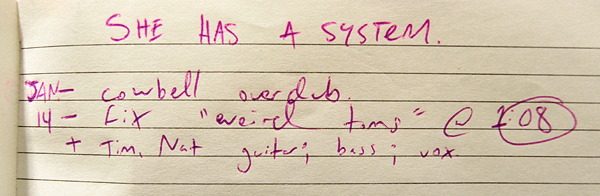 SHE HAS A SYSTEM.
JAN- cowbell overdub.
14 - fix "weird toms" @ 1:08
+ Tim, Nat guitar; bass; vox